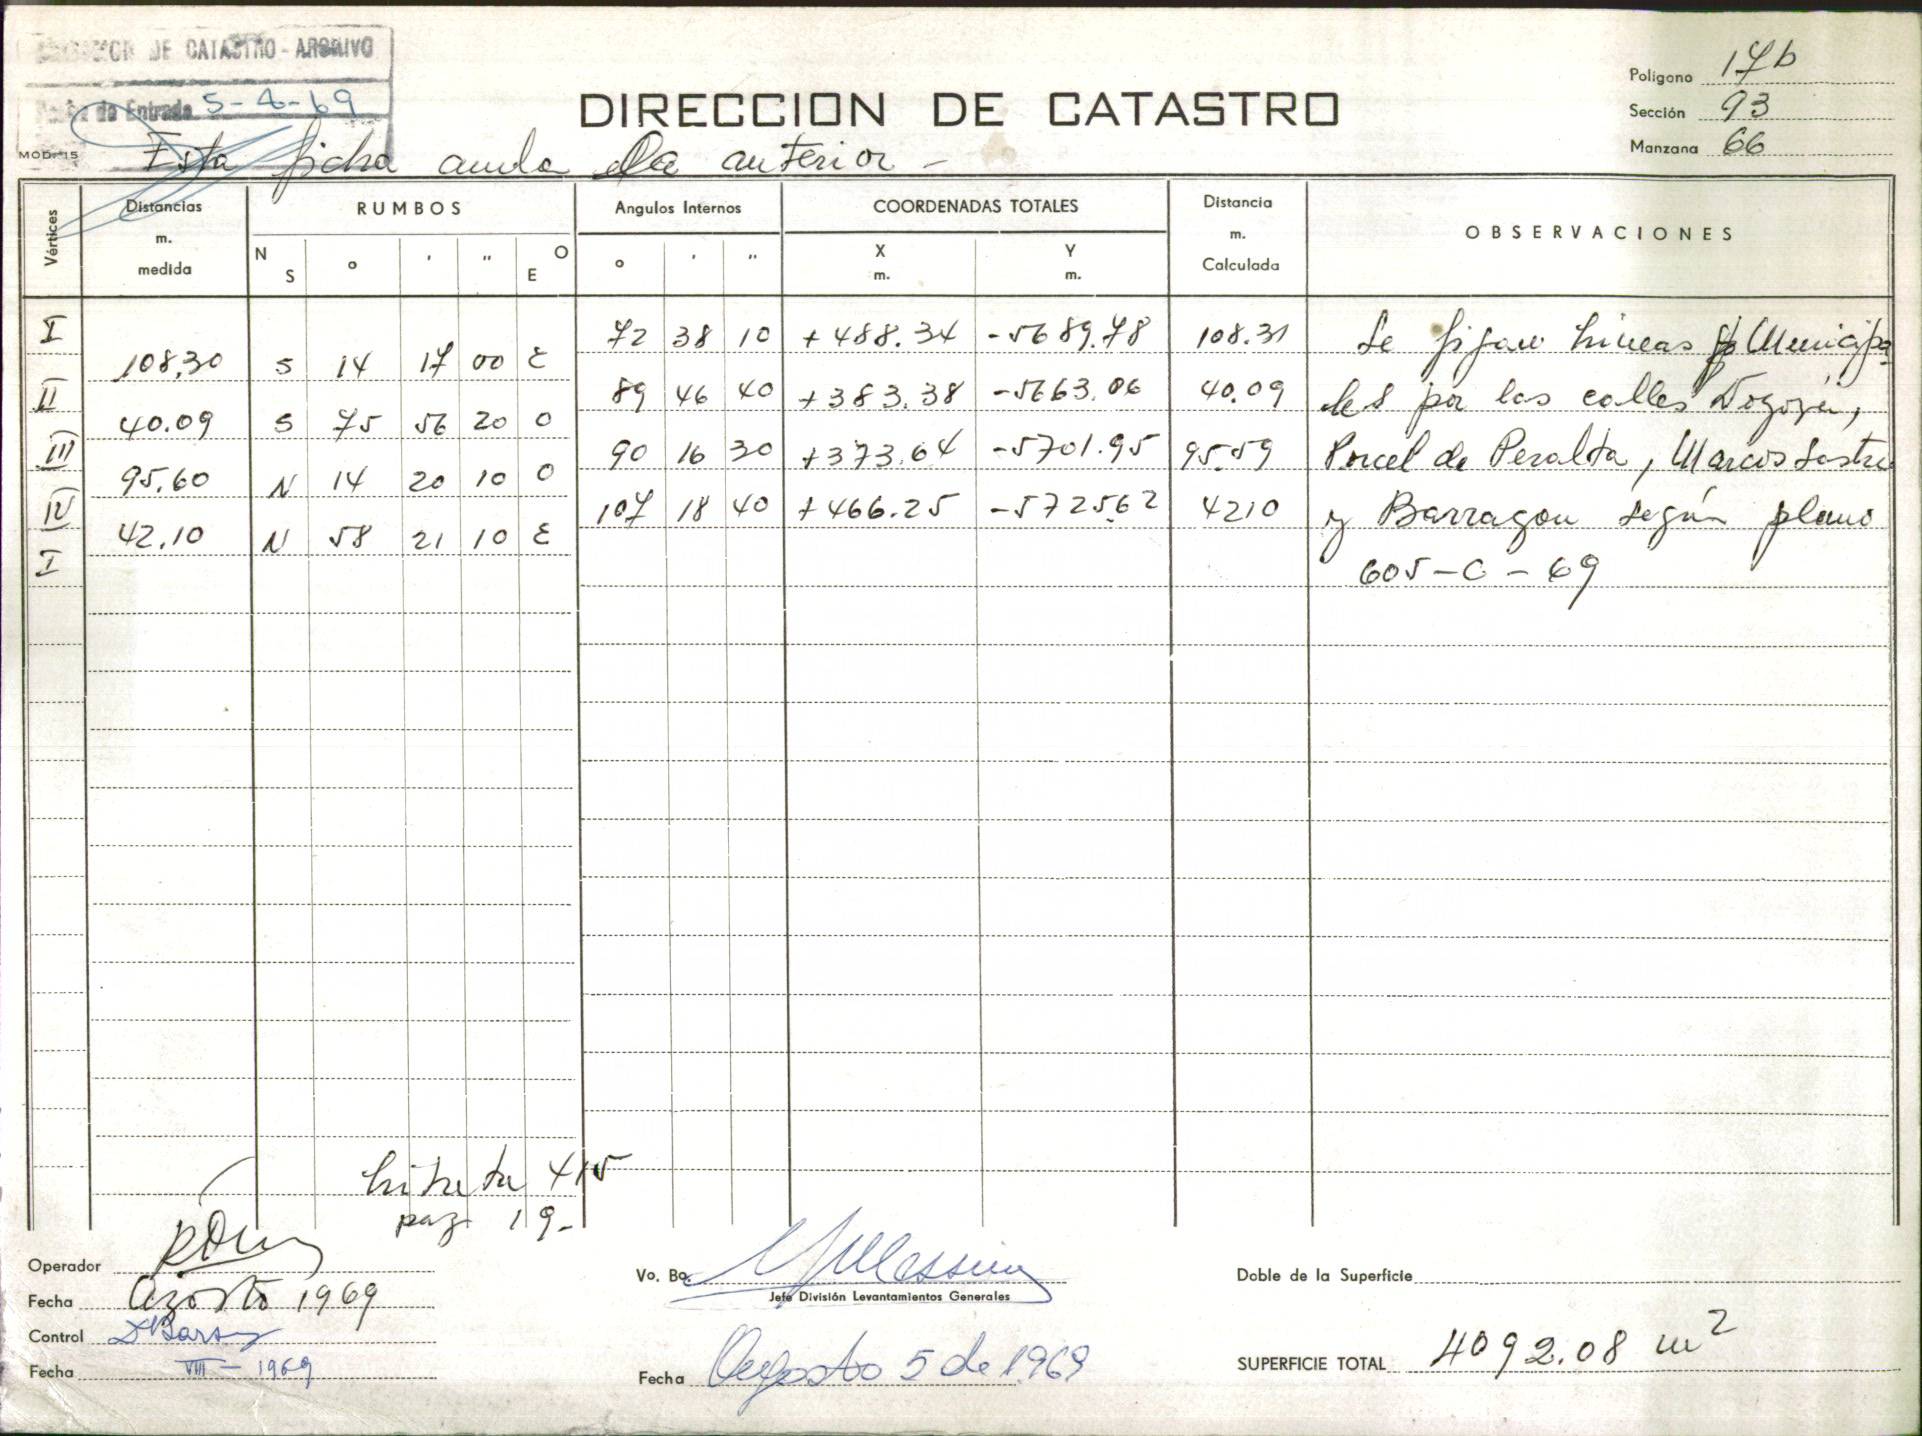 DIVISION DE CATASTRO - ARCHIVO
Fecha de Entrada 5-8-69
DIRECCION DE CATASTRO
Polígono 17b
Sección 93
Manzana 66
MOD. 15
Esta ficha anula la anterior -
Vértices
Distancias m. medida
RUMBOS
N S o ' " E O
Angulos Internos
o ' "
COORDENADAS TOTALES
X m. Y m.
Distancia m. Calculada
OBSERVACIONES
I 72 38 10 +488.34 -5689.78 108.31 Se fijan líneas Municipa-
108,30 S 14 17 00 E
II 89 46 40 +383.38 -5663.06 40.09 les por las calles
40.09 S 75 56 20 O
III 90 16 30 +373.64 -5701.95 95.59 Porcel de Peralta, Marcos Sastre
95.60 N 14 20 10 O
IV 107 18 40 +466.25 -5725.62 42.10 y Barragan según plano
42.10 N 58 21 10 E
I 605-C-69
Libreta 415
pag. 19-
Operador
Fecha Agosto 1969
Control
Fecha VIII - 1969
Vo. Bo.
Jefe División Levantamientos Generales
Fecha Agosto 5 de 1969
Doble de la Superficie
SUPERFICIE TOTAL 4092.08 m2